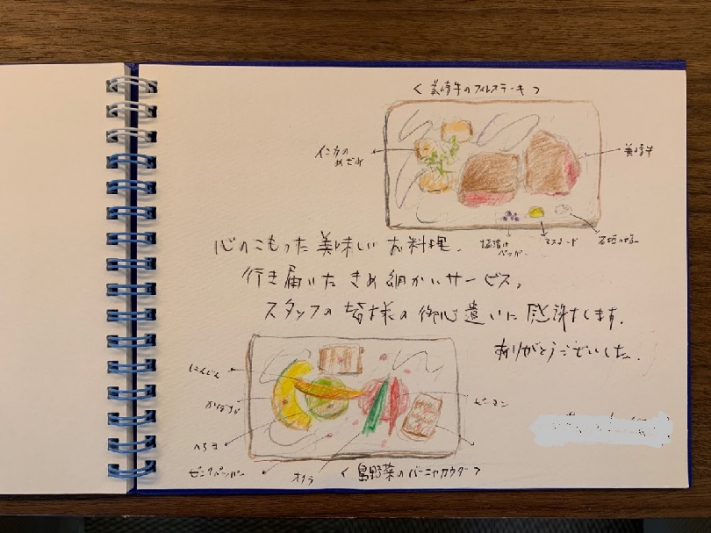 < 美崎牛のフィレステーキ >
インカの
めざめ
美崎牛
塩漬け
ペッパー
マスタード
石垣の塩
心のこもった美味しいお料理、
行き届いたきめ細かいサービス。
スタッフの皆様の御心遣いに感謝致します。
ありがとうございました。
にんじん
かぼちゃ
ピーマン
へちま
ピンクペッパー
オクラ
< 島野菜のバーニャカウダ >